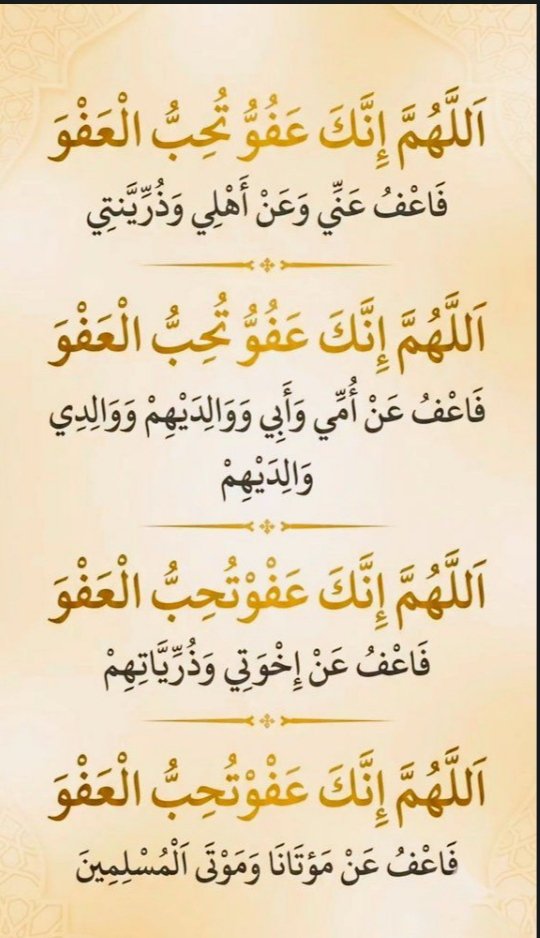 اَللَّهُمَّ إِنَّكَ عَفُوٌّ تُحِبُّ الْعَفْوَ
فَاعْفُ عَنِّي وَعَنْ أَهْلِي وَذُرِّيَّتِي
اَللَّهُمَّ إِنَّكَ عَفُوٌّ تُحِبُّ الْعَفْوَ
فَاعْفُ عَنْ أُمِّي وَأَبِي وَوَالِدَيْهِمْ وَوَالِدِي
وَالِدَيْهِمْ
اَللَّهُمَّ إِنَّكَ عَفْوْتُحِبُّ الْعَفْوَ
فَاعْفُ عَنْ إِخْوَتِي وَذُرِّيَّاتِهِمْ
اَللَّهُمَّ إِنَّكَ عَفْوْتُحِبُّ الْعَفْوَ
فَاعْفُ عَنْ مَؤتَانَا وَمَوْتَى اَلْمُسْلِمِينَ